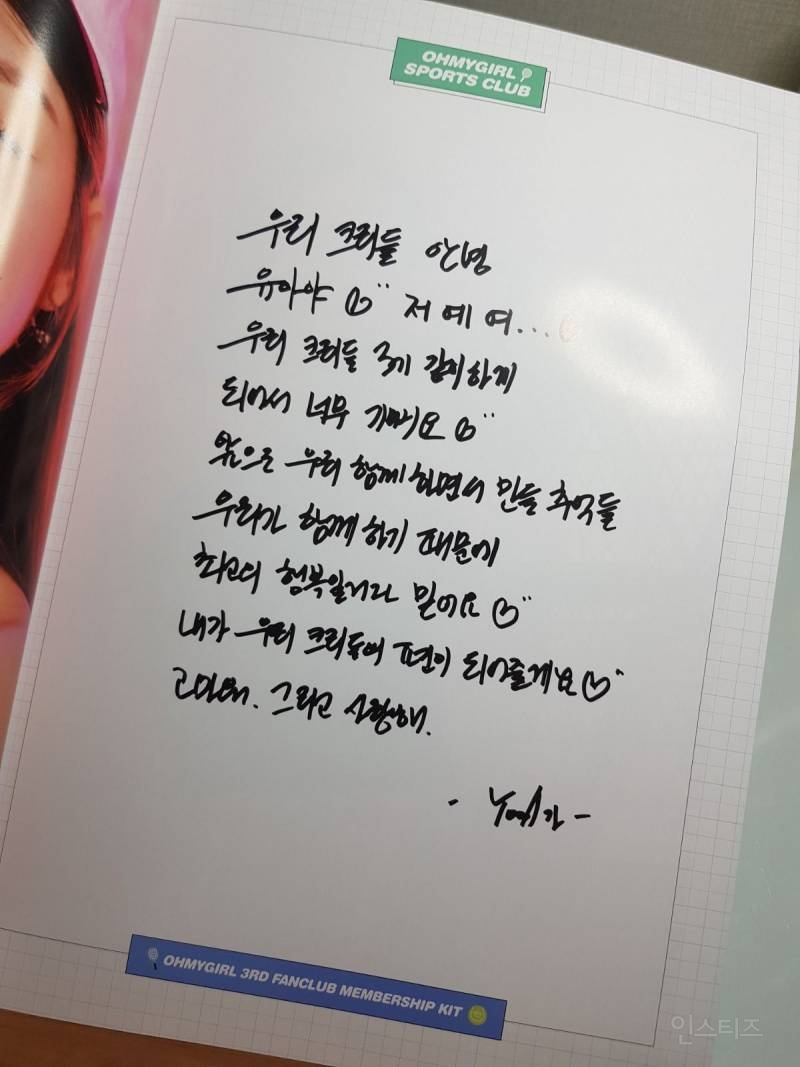 OHMYGIRL
SPORTS CLUB
우리 크리들 안녕
유아야 저예여...
우리 크리들 3기 함께하게
되어서 너무 기뻐요
앞으로 우리 함께 하면서 만들 추억들
우리가 함께 하기 때문에
최고의 행복일거라 믿어요
내가 우리 크리들에 편이 되어줄게요
고마워. 그리고 사랑해.
OHMYGIRL 3RD FANCLUB MEMBERSHIP KIT
인스티즈